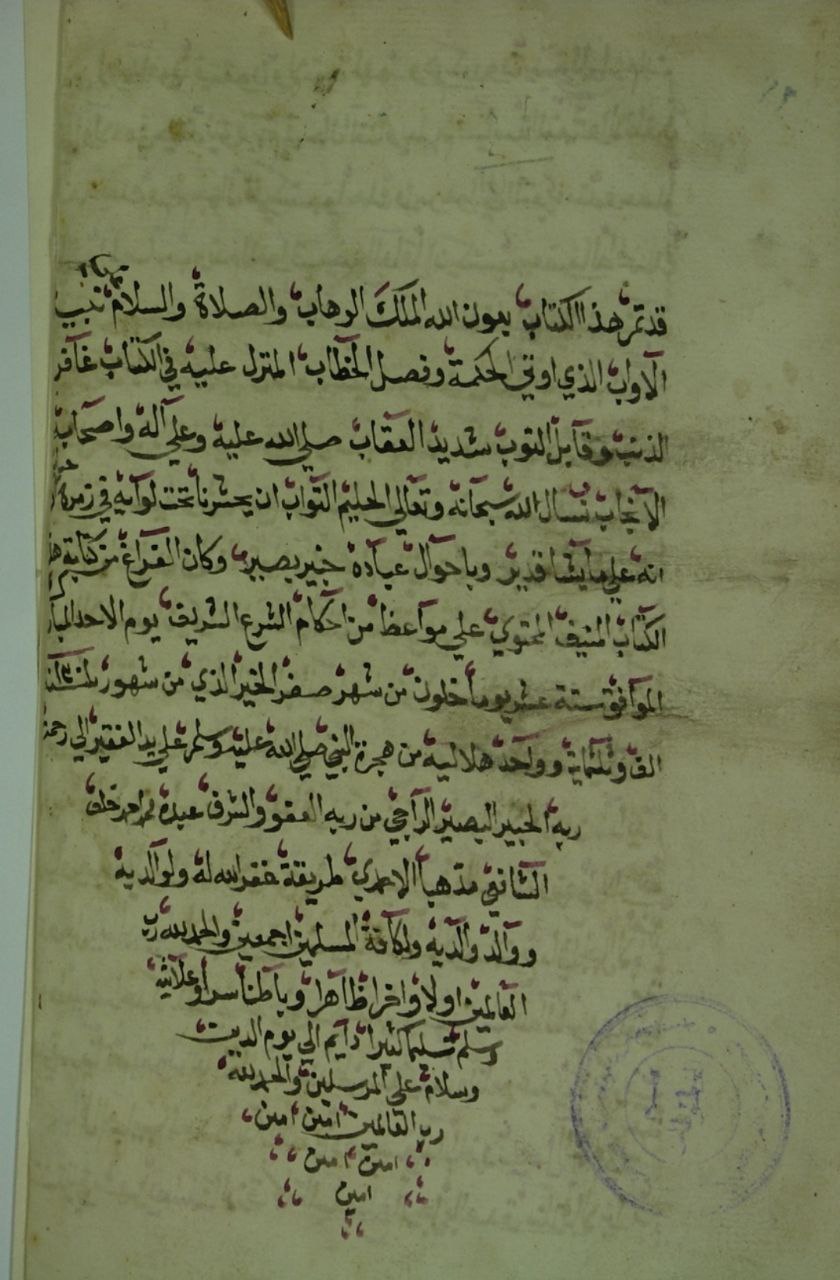 قد تم هذا الكتاب بعون الله الملك الوهاب والصلاة والسلام نبيه
الاواب الذي اوتي الحكمة وفصل الخطاب المنزل عليه في الكتاب غافر
الذنب وقابل التوب شديد العقاب صلي الله عليه وعلي آله واصحابه
الانجاب نسال الله سبحانه وتعالي الحليم التواب ان يحشرنا تحت لوآيه في زمرة
انه علي ما يشا قدير وباحوال عباده خبير بصير وكان الفراغ من كتابة هذا
الكتاب المنيف المحتوي علي مواعظا من احكام الشرع الشريف يوم الاحد المبارك
الموافق ستة عشر يوما خلون من شهر صفر الخير الذي من شهور سنة
الف وثلثماية وواحد هلاليه من هجرة النبي صلي الله عليه وسلم علي يد الفقير الي رحمة
ربه الخبير البصير الراجي من ربه العفو والشرف عبده محمد احمد خلف
الشافعي مذهبا الاحمدي طريقة غفر الله له ولوالديه
ووالد والديه ولكآفة المسلمين اجمعين والحمد لله رب
العالمين اولا واخرا ظاهرا وباطنا سرا وعلانيه
وسلم تسليما كثيرا دايم الي يوم الدين
وسلام علي المرسلين والحمد لله
رب العالمين امين امين
امين امين
امين